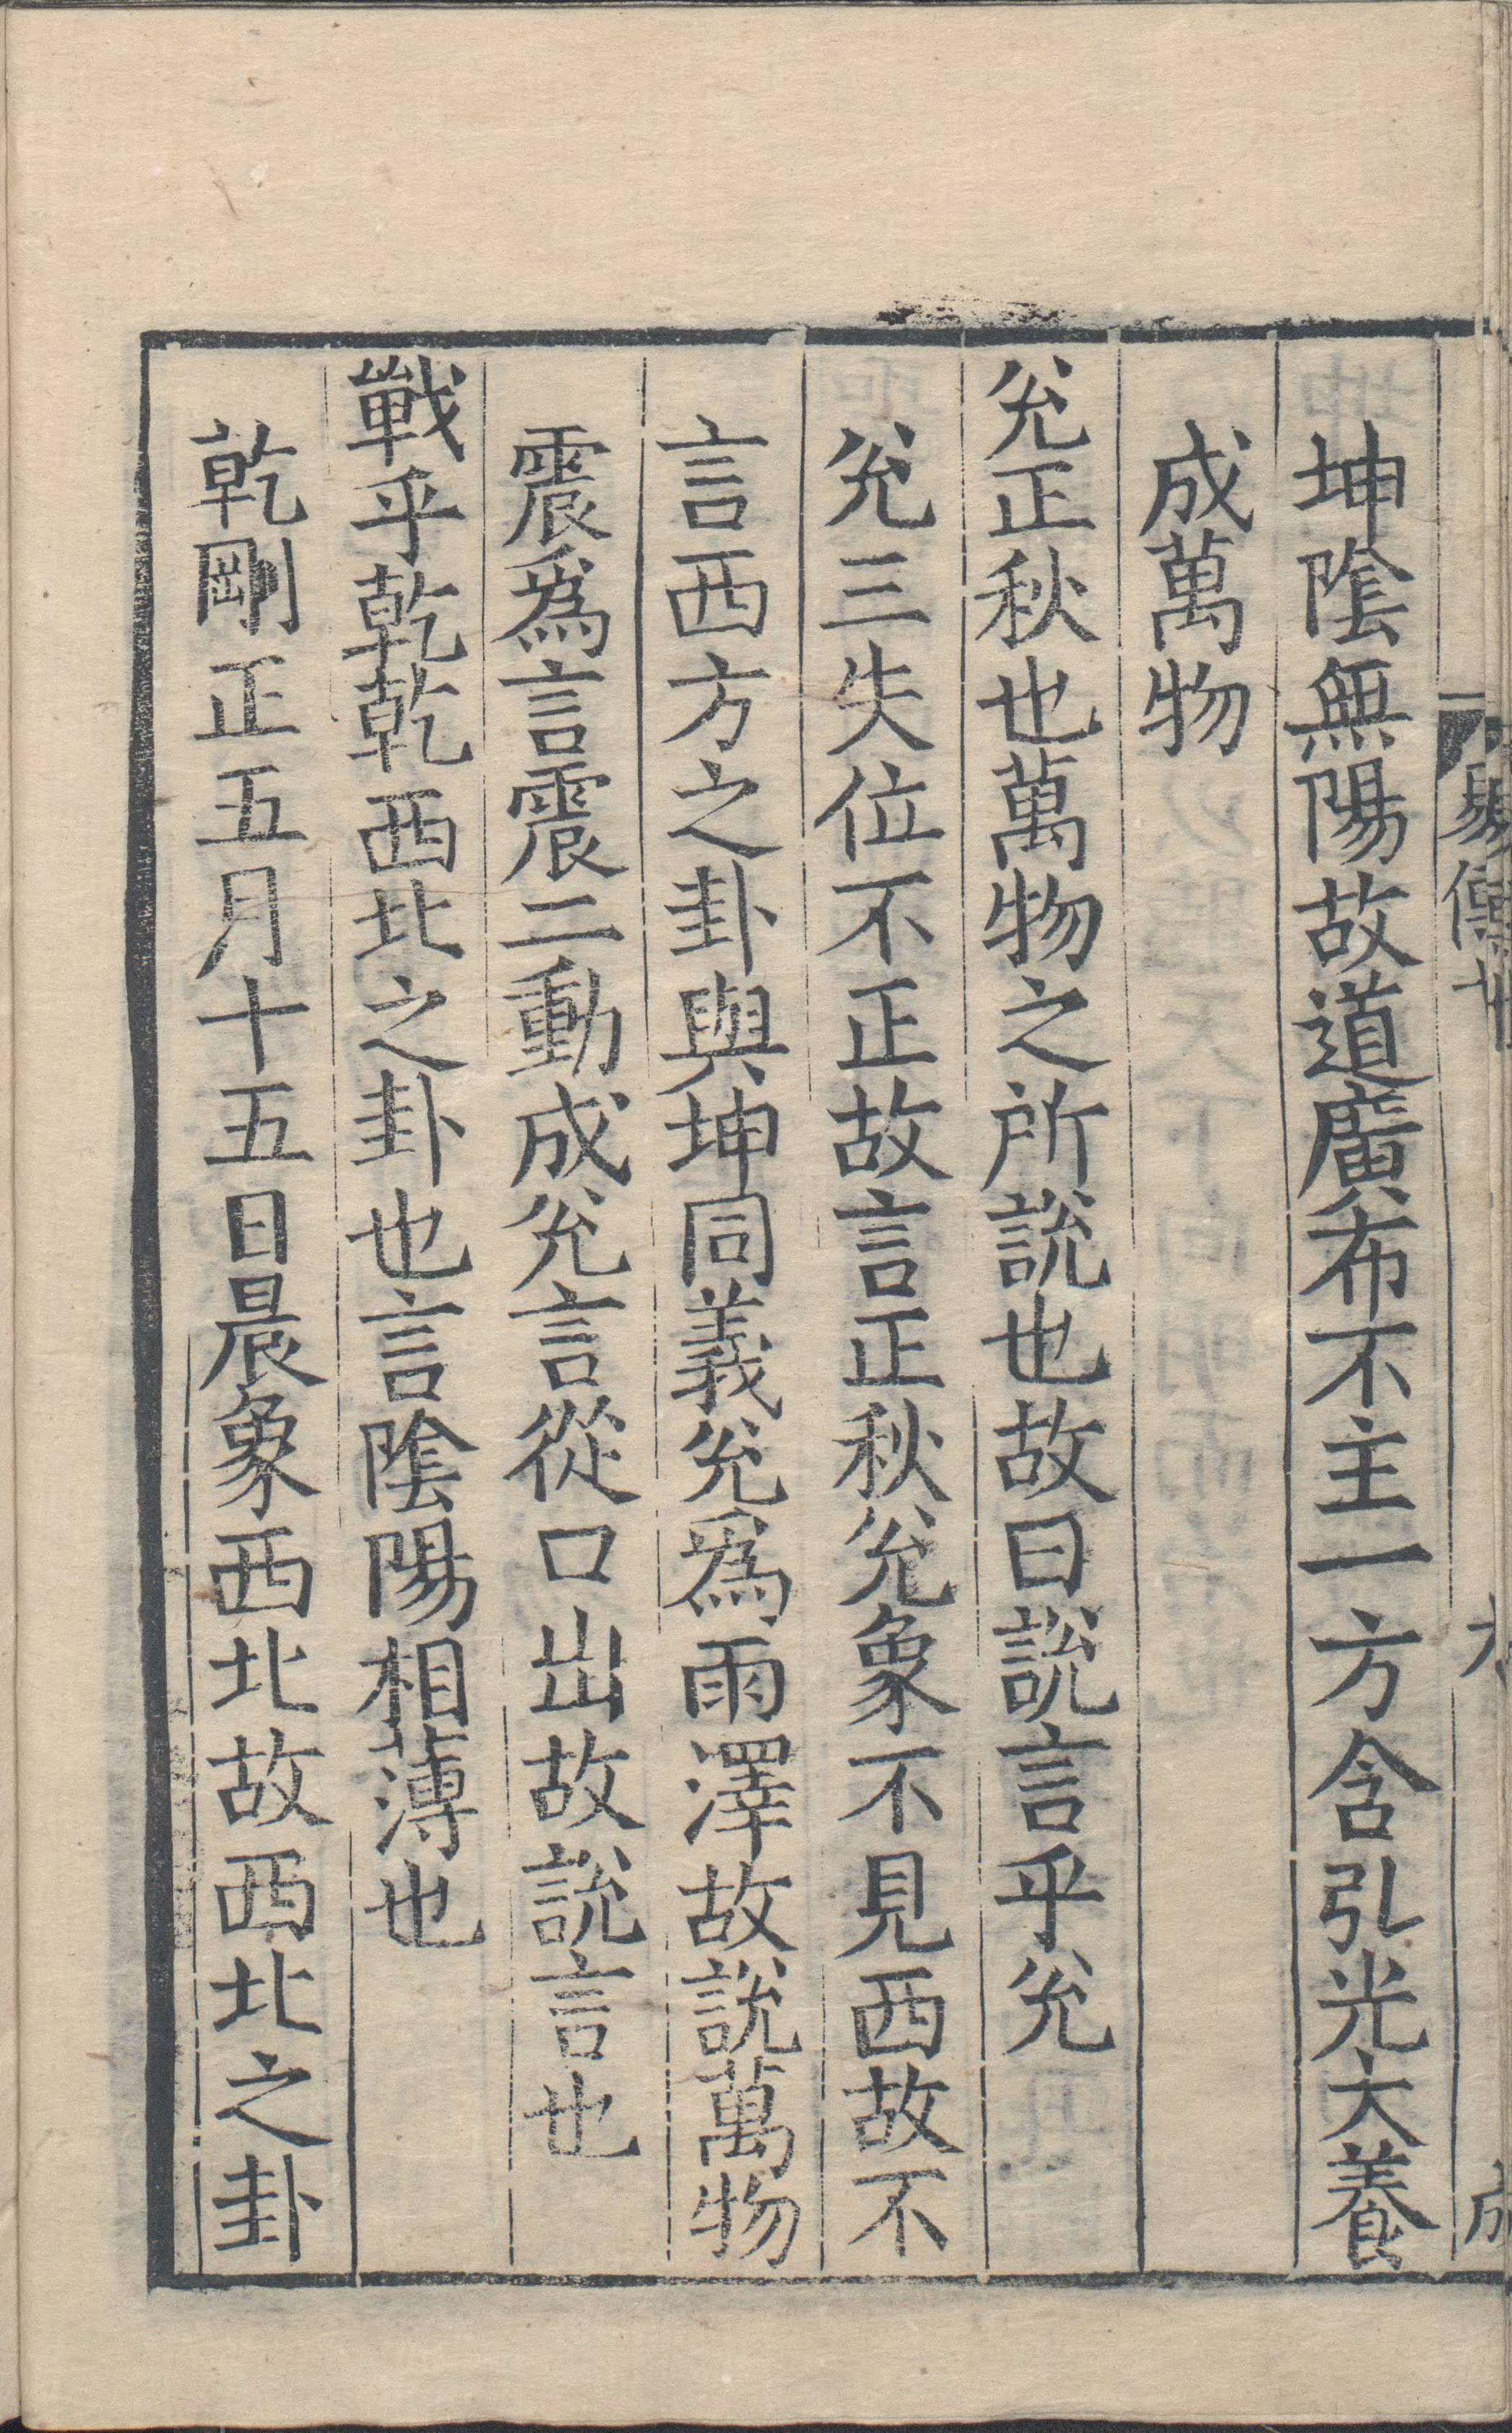 易傳十
坤隂無陽故道廣布不主一方含弘光大養
成萬物
兊正秋也萬物之所說也故曰說言乎兊
兊三失位不正故言正秋兊象不見西故不
言西方之卦與坤同義兊爲雨澤故說萬物
震爲言震二動成兊言從口出故說言也
戰乎乾乾西北之卦也言隂陽相薄也
乾剛正五月十五日晨象西北故西北之卦